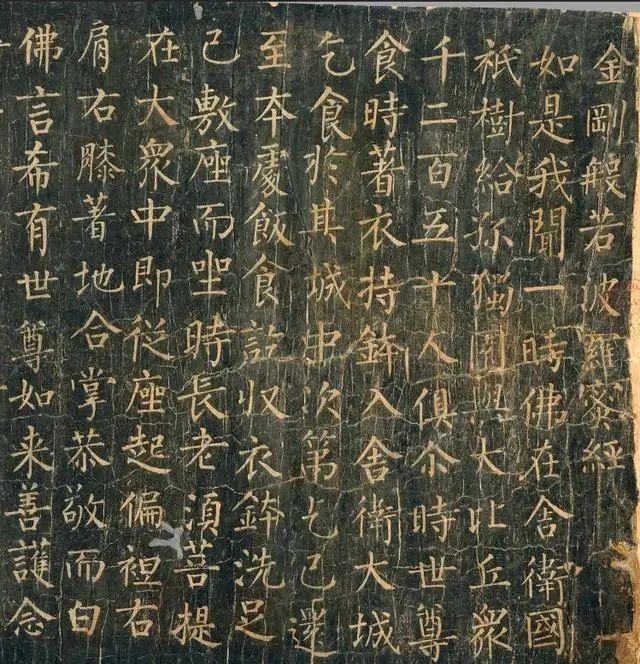 金剛般若波羅蜜經
如是我聞一時佛在舍衛國
祇樹給孤獨園與大比丘衆
千二百五十人俱尒時世尊
食時著衣持鉢入舍衛大城
乞食於其城中次第乞已還
至本處飯食訖收衣鉢洗足
已敷座而坐時長老湏菩提
在大衆中即從座起偏袒右
肩右膝著地合掌恭敬而白
佛言希有世尊如来善護念